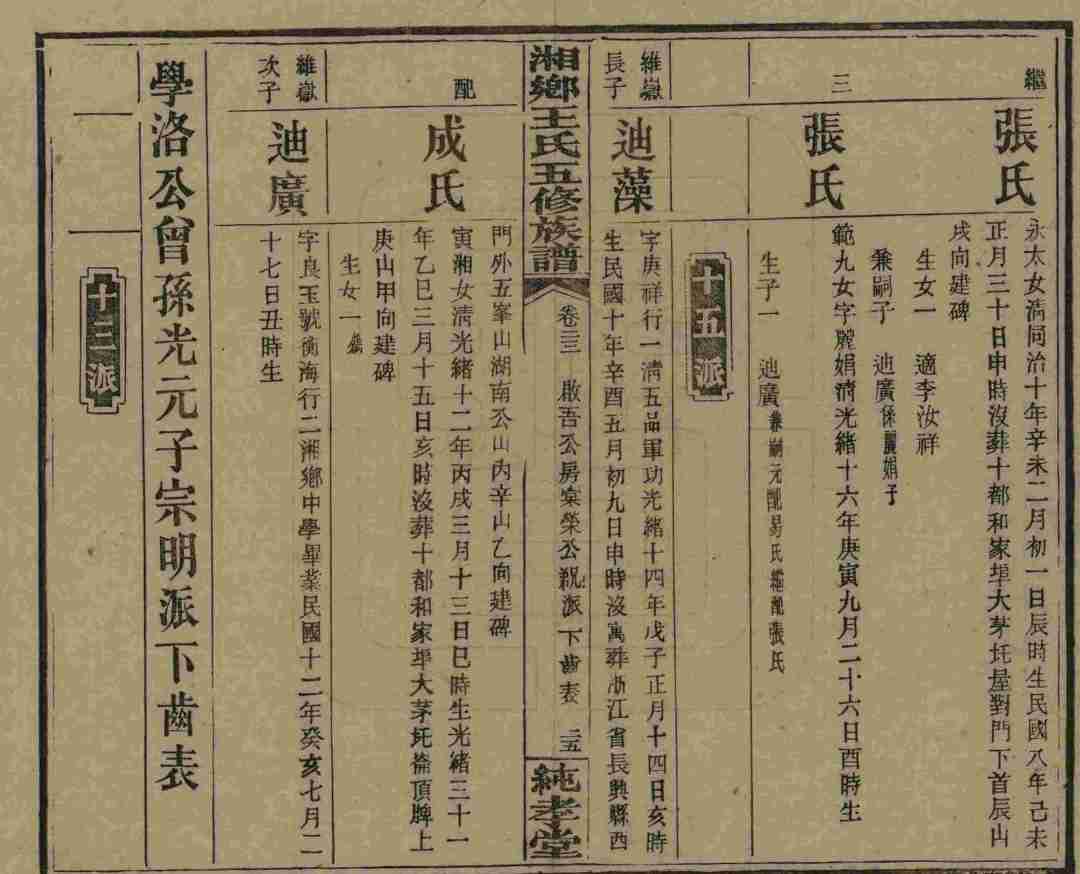 繼
張氏
永太女淸同治十年辛未二月初一日辰時生民國八年己未
正月三十日申時沒葬十都和家埠大茅坵屋對門下首辰山
戌向建碑
生女一　適李汝祥
兼嗣子　迪廣係麗娟子
三
張氏
範九女字麗娟淸光緒十六年庚寅九月二十六日酉時生
生子一　迪廣兼嗣元配易氏繼配張氏
十五派
維嶽長子
迪藻
字庚祥行一淸五品軍功光緒十四年戊子正月十四日亥時
生民國十年辛酉五月初九日申時沒寓葬浙江省長興縣西
湘鄉王氏五修族譜
卷三三　啟吾公房棠榮公祝派下齒表　三五
純孝堂
門外五峯山湖南公山內辛山乙向建碑
配
成氏
寅湘女淸光緒十二年丙戌三月十三日巳時生光緒三十一
年乙巳三月十五日亥時沒葬十都和家埠大茅坵崙頂牌上
庚山甲向建碑
生女一
維嶽次子
迪廣
字良玉號衡海行二湘鄉中學畢業民國十二年癸亥七月二
十七日丑時生
學洛公曾孫光元子宗明派下齒表
十三派